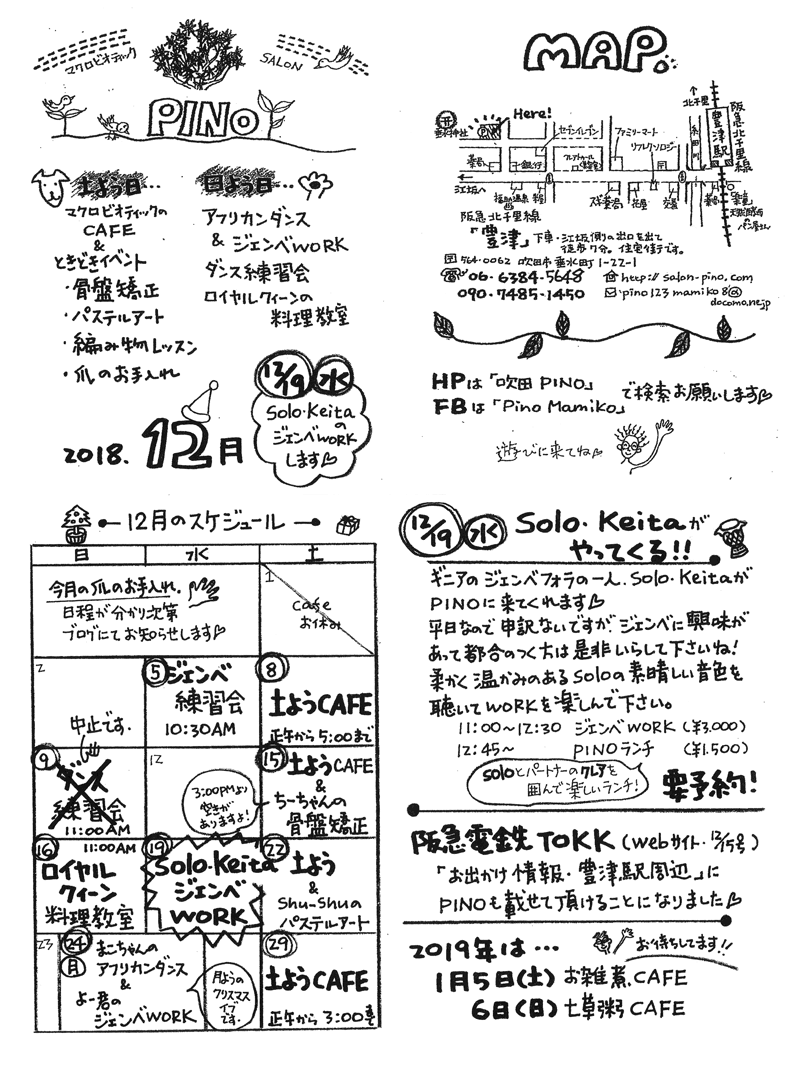 マクロビオティック
SALON
PINO
土よう日…
マクロビオティックの
CAFE
&
ときどきイベント
・骨盤矯正
・パステルアート
・編み物レッスン
・爪のお手入れ
日よう日…
アフリカンダンス
& ジェンベWORK
ダンス練習会
ロイヤルクィーンの
料理教室
2018. 12月
12/19 水
Solo・Keita
の
ジェンベWORK
します
MAP
Here!
垂水神社
PINO
セブンイレブン
ファミリーマート
リフレクソロジー
↑北千里
豊津駅
阪急北千里線
江坂へ
阪急北千里線
「豊津」下車・江坂側の出口を出て
徒歩7分。住宅街です。
〒564-0062 吹田市垂水町1-22-1
☎06-6384-5648
http://salon-pino.com
090-7485-1450
pino123mamiko8@
docomo.ne.jp
HPは「吹田 PINO」
FBは「Pino Mamiko」
で検索お願いします
遊びに来てね
12月のスケジュール
日 水 土
今月の爪のお手入れ、
日程が分かり次第
ブログにてお知らせします
1
cafe
お休み
2
5 ジェンベ
練習会
10:30AM
8
土ようCAFE
正午から5:00まで
中止です。
9 ダンス
練習会
11:00AM
12
3:00PMより
空きが
ありますよ!
15 土ようCAFE
&
ちーちゃんの
骨盤矯正
16 11:00AM
ロイヤル
クィーン
料理教室
19
Solo・Keita
ジェンベ
WORK
22
土よう
&
Shu-Shuの
パステルアート
23
24 月
まこちゃんの
アフリカンダンス
&
よー君の
ジェンベWORK
月ようの
クリスマス
イブ
です。
29
土ようCAFE
正午から3:00まで
12/19 水 Solo・Keitaが
やってくる!!
ギニアのジェンベフォラの一人、Solo・Keitaが
PINOに来てくれます
平日なので申訳ないですが、ジェンベに興味が
あって都合のつく方は是非いらして下さいね!
柔かく温かみのあるSoloの素晴しい音色を
聴いてWORKを楽しんで下さい。
11:00〜12:30 ジェンベWORK (¥3,000)
12:45〜 PINOランチ (¥1,500)
Soloとパートナーのクレアを
囲んで楽しいランチ!
要予約!
阪急電鉄TOKK(webサイト・12/15号)
「お出かけ情報・豊津駅周辺」に
PINOも載せて頂けることになりました
2019年は…
お待ちしてます!!
1月5日(土) お雑煮CAFE
6日(日) 七草粥CAFE